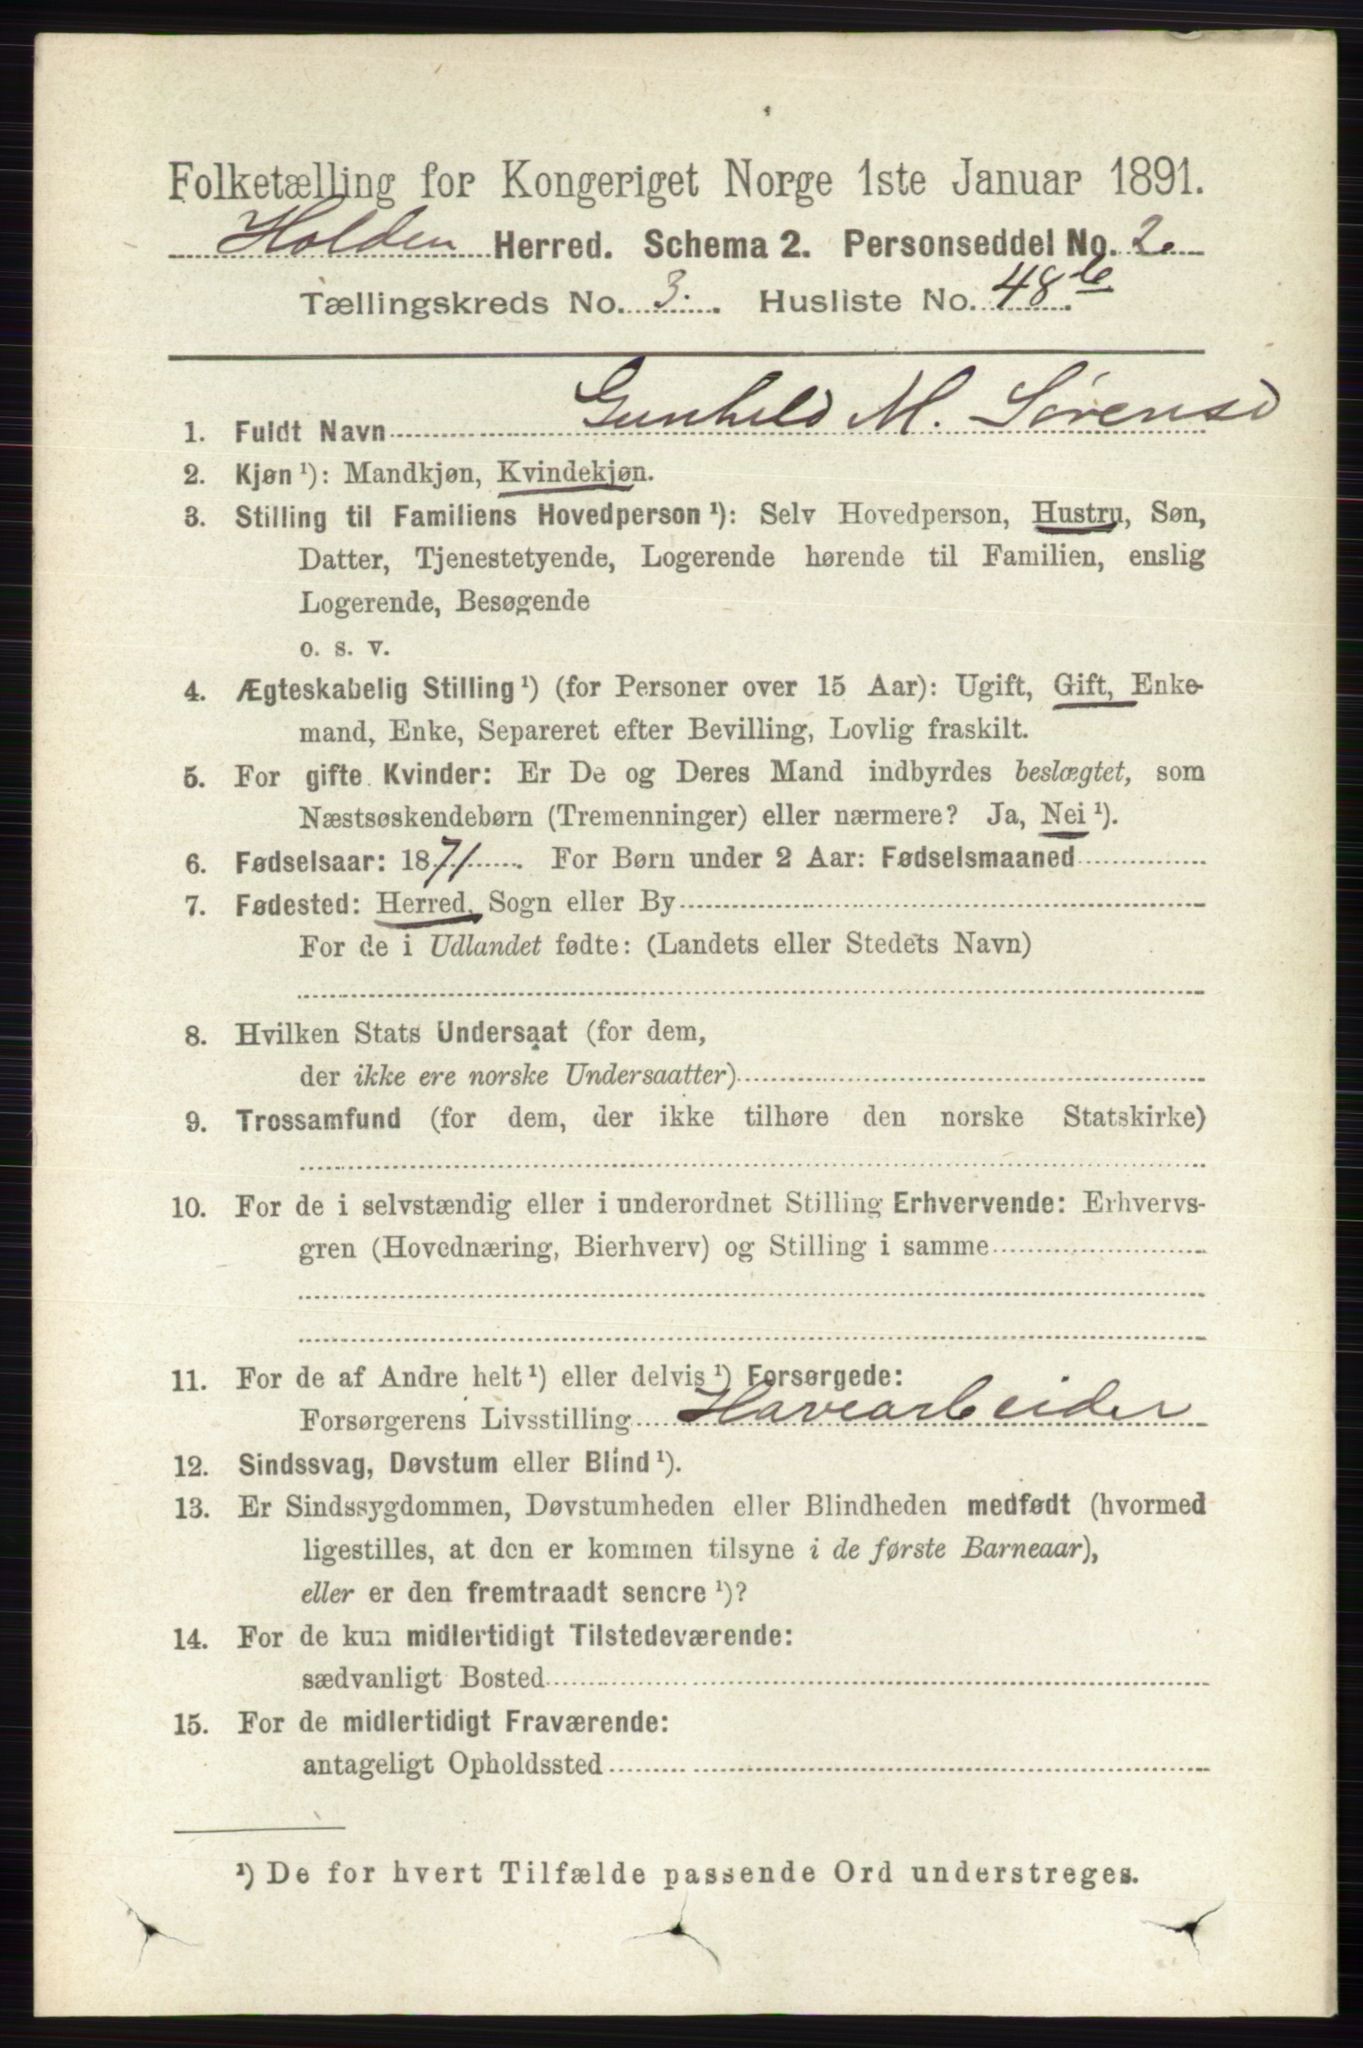 Folketælling for Kongeriget Norge 1ste Januar 1891.
Holden Herred. Schema 2. Personseddel No. 2.
Tællingskreds No. 3. Husliste No. 48 b
1. Fuldt Navn Gunhild M. Sørensd
2. Kjøn ¹): Mandkjøn, Kvindekjøn.
3. Stilling til Familiens Hovedperson ¹): Selv Hovedperson, Hustru, Søn,
Datter, Tjenestetyende, Logerende hørende til Familien, enslig
Logerende, Besøgende
o. s. v.
4. Ægteskabelig Stilling ¹) (for Personer over 15 Aar): Ugift, Gift, Enke-
mand, Enke, Separeret efter Bevilling, Lovlig fraskilt.
5. For gifte Kvinder: Er De og Deres Mand indbyrdes beslægtet, som
Næstsøskendebørn (Tremenninger) eller nærmere? Ja, Nei ¹).
6. Fødselsaar: 1871. For Børn under 2 Aar: Fødselsmaaned
7. Fødested: Herred, Sogn eller By
For de i Udlandet fødte: (Landets eller Stedets Navn)
8. Hvilken Stats Undersaat (for dem,
der ikke ere norske Undersaatter)
9. Trossamfund (for dem, der ikke tilhøre den norske Statskirke)
10. For de i selvstændig eller i underordnet Stilling Erhvervende: Erhvervs-
gren (Hovednæring, Bierhverv) og Stilling i samme
11. For de af Andre helt ¹) eller delvis ¹) Forsørgede:
Forsørgerens Livsstilling Havearbeider
12. Sindssvag, Døvstum eller Blind ¹).
13. Er Sindssygdommen, Døvstumheden eller Blindheden medfødt (hvormed
ligestilles, at den er kommen tilsyne i de første Barneaar),
eller er den fremtraadt senere ¹)?
14. For de kun midlertidigt Tilstedeværende:
sædvanligt Bosted
15. For de midlertidigt Fraværende:
antageligt Opholdssted
¹) De for hvert Tilfælde passende Ord understreges.